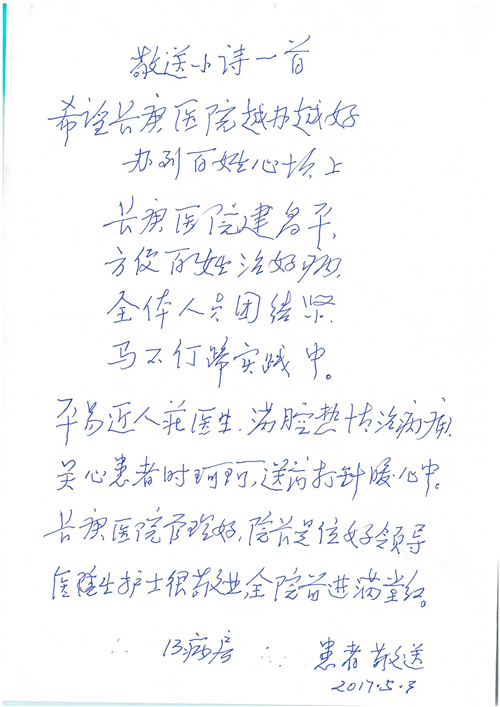 敬送小诗一首
希望长庚医院越办越好
办到百姓心坎上
长庚医院建昌平,
方便百姓治好病,
全体人员团结紧
马不停蹄实践中。
平易近人莊医生,满腔热情治病痛,
关心患者时珂珂,送药打针暖心中。
长庚医院管理好,院长是位好领导
医院医生护士很敬业,全院首进满堂红。
13病房
患者敬送
2017.5.3